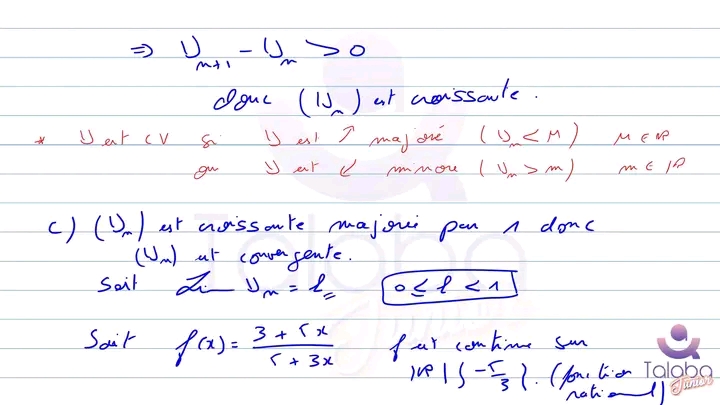 ⇒ U_{n+1} - U_n > 0
donc (U_n) est croissante.
* U est CV si U est ↗ majoré (U_n < M) M ∈ ℝ
ou U est ↙ minoré (U_n > m) m ∈ ℝ
c) (U_n) est croissante majorée par 1 donc
(U_n) est convergente.
Soit Lim U_n = l, 0 ≤ l < 1
Soit f(x) = (3 + 5x)/(5 + 3x) f est continue sur
ℝ \ {-5/3}. (fonction
rationnel)
Talaba
Junior
Talaba
Junior